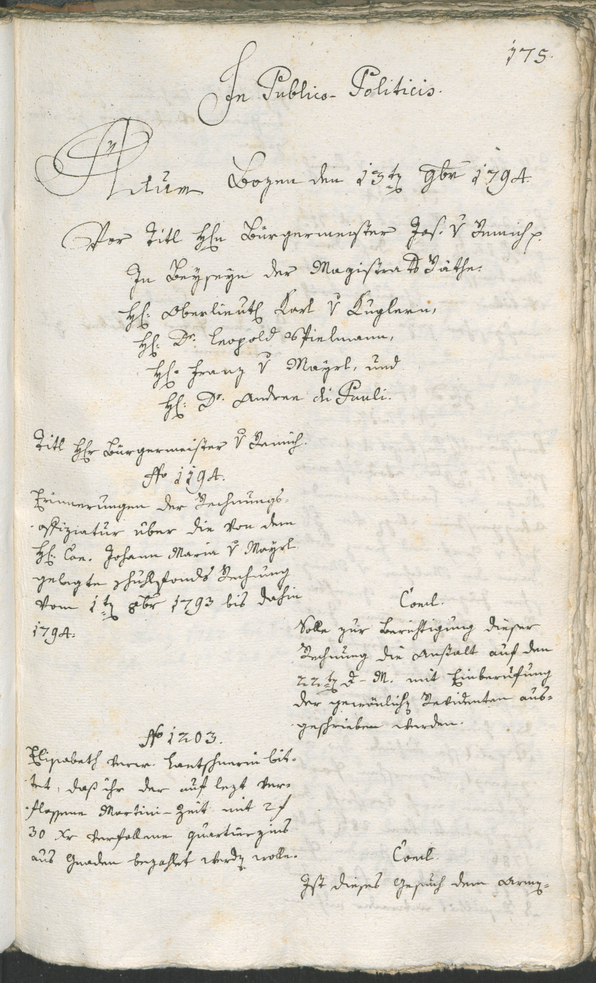 175.
In Publico-Politicis.
Actum Bozen den 13tn 9br 1794.
Vor Titl Hhn Bürgermeister Jos: v Remich p.
In Beyseyn der Magistrats Räthe:
Hh: Oberlieutt Karl v Kuglern,
Hh: Dr. Leopold Spielmann,
Hh: Franz v Mayrl, und
Hh: Dr. Andree di Pauli.
Titl Hhr Bürgermeister v Remich.
No 1194.
Erinnerungen der Rechnungs-
offiziatur über die von dem
Hh: Johann Maria v Mayrl
gelegte Schulfonds Rechnung
vom 1tn 8br 1793 bis dahin
1794.
Concl.
Solle zur Berichtigung dieser
Rechnung die Anstalt auf den
22tn d. M. mit Einberufung
der gewönlichn Revidenten aus-
geschrieben werden.
No 1203.
Elisabeth verw. Lantschnerin bit-
tet, daß ihr der auf lezt ver-
flossene Martini-Zeit mit 2 f
30 Xr verfallene quartierzins
aus Gnaden bezahlet werdn wolle.
Concl.
Ist dieses Gesuch dem Armen-